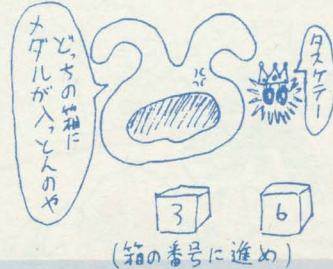 どっちの箱に
メダルが入っとんのや
タスケテー
3
6
(箱の番号に進め)